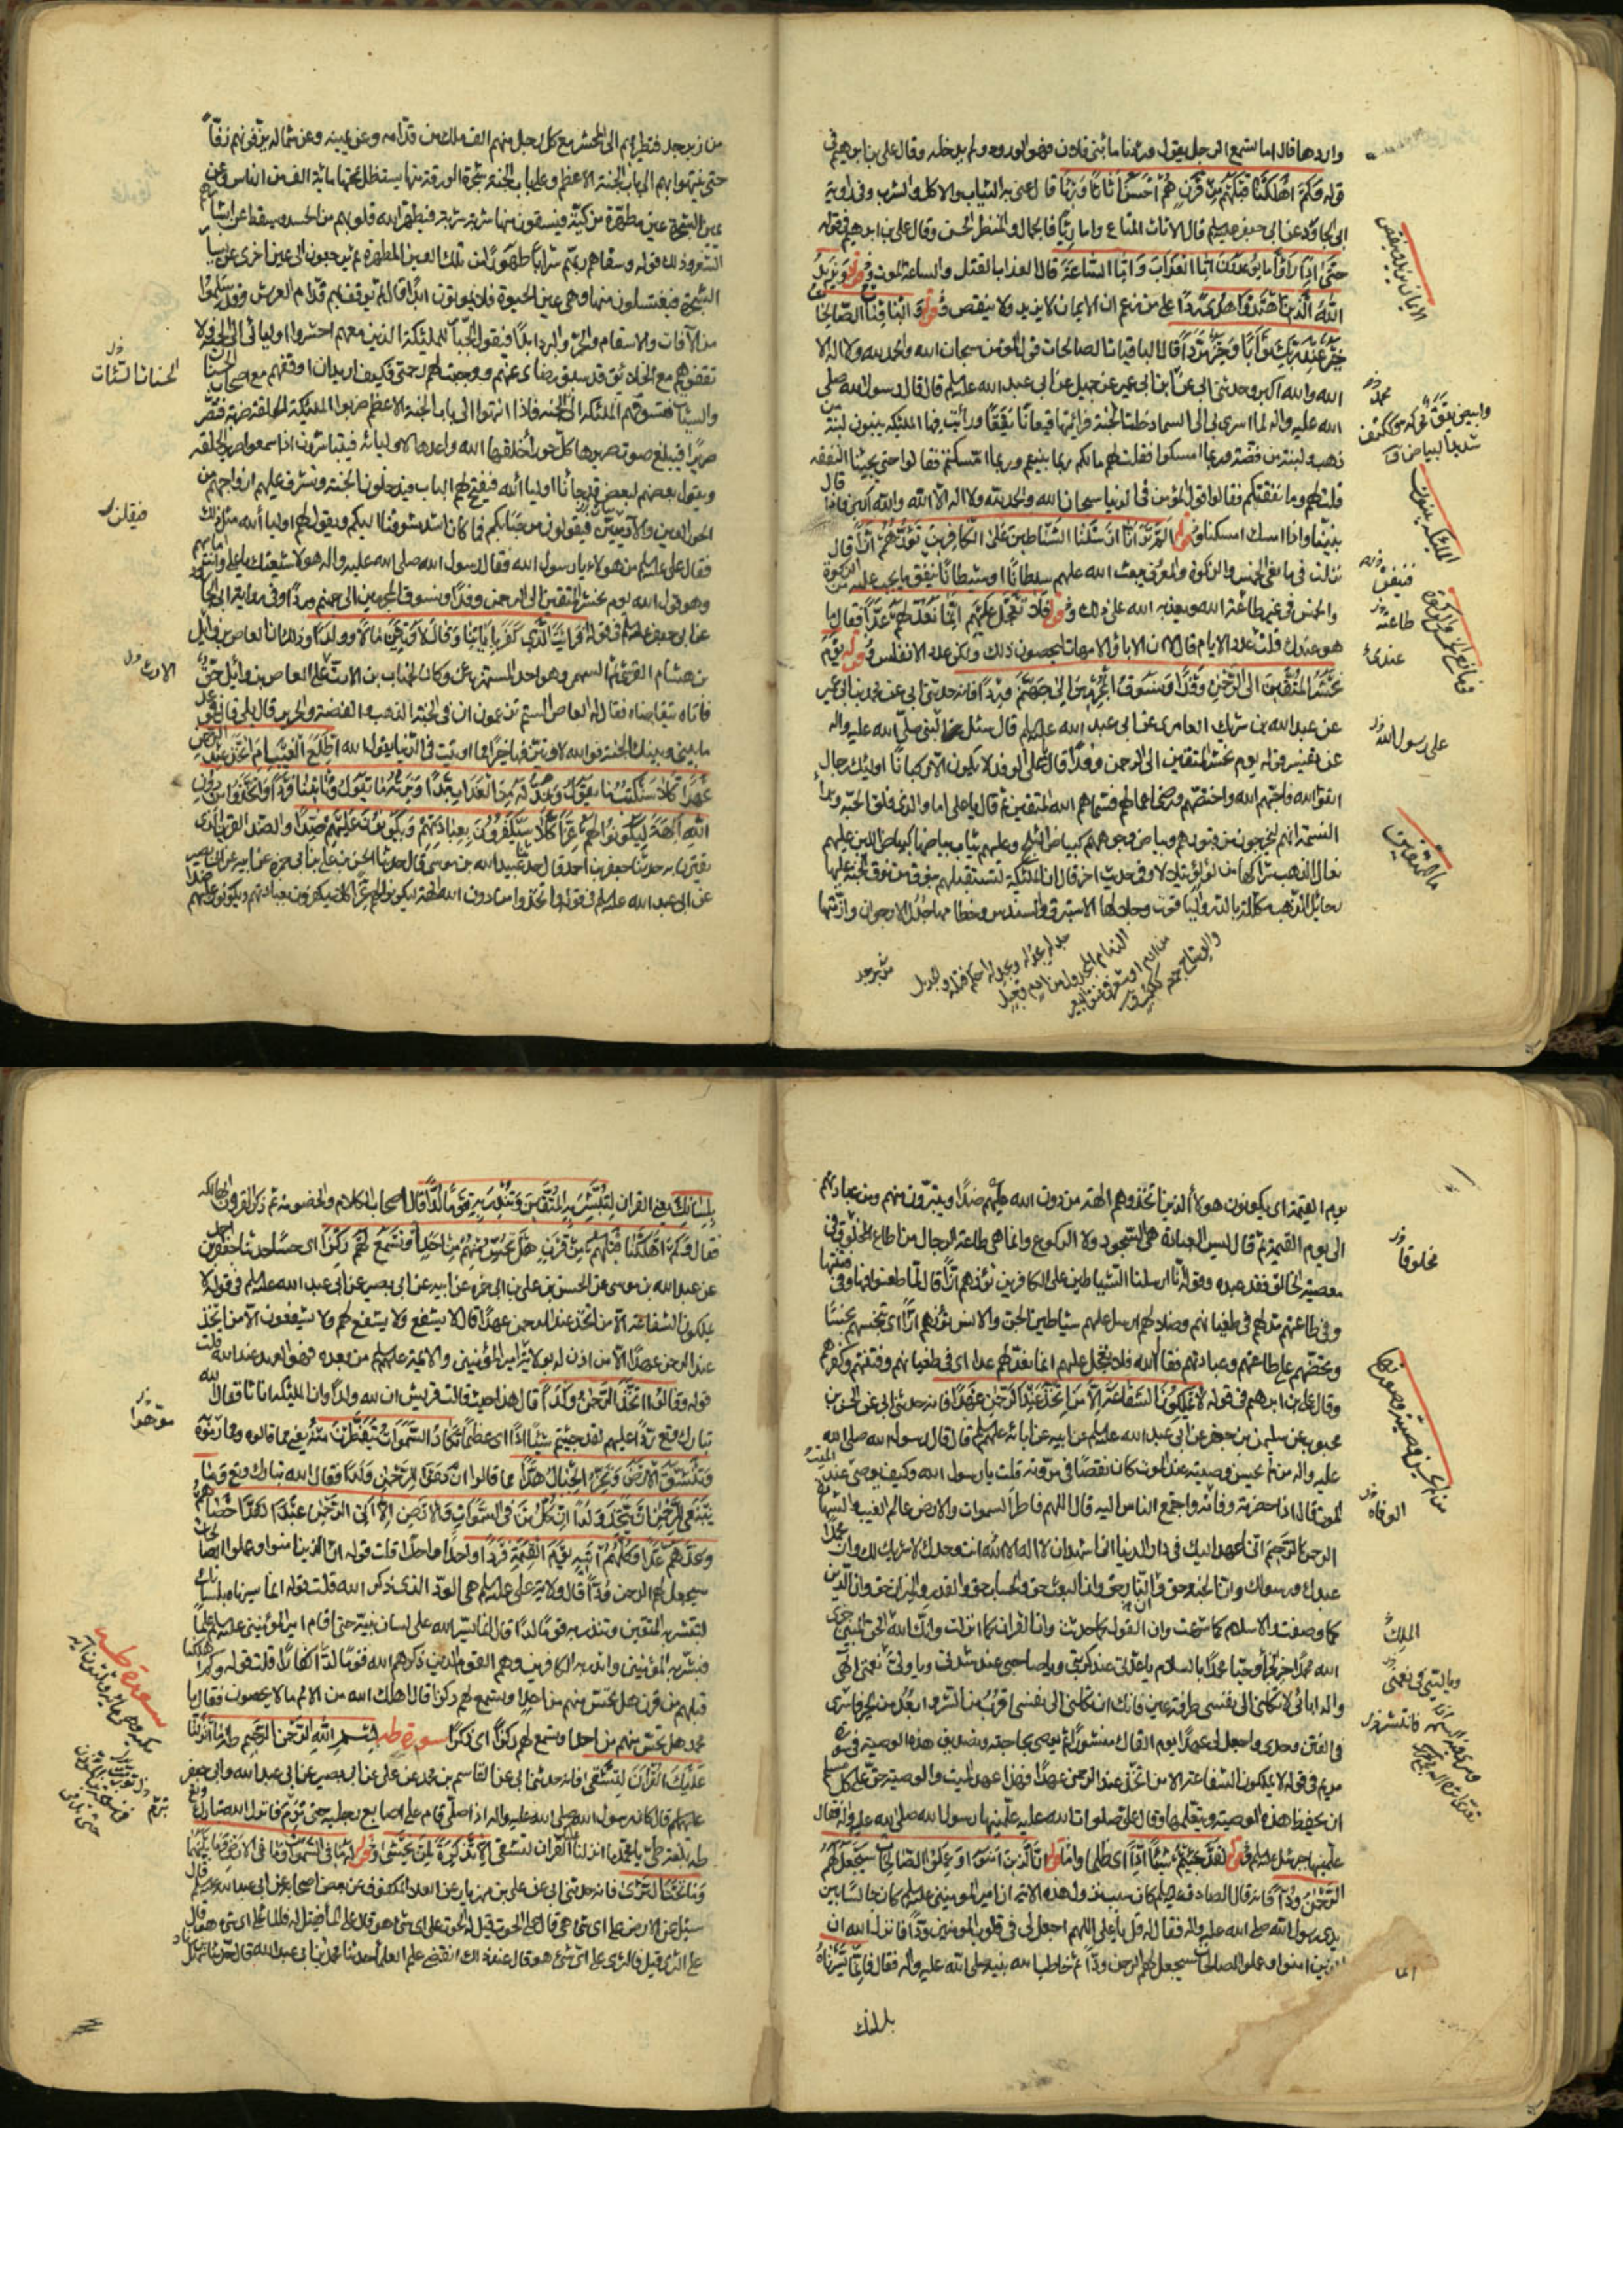 واردها قال اما تسمع الرجل يقول وردنا ماء بني فلان فهو الورود ولم يدخله وقال علي بن ابرهيم في
قوله وكم اهلكنا قبلهم من قرن هم احسن اثاثا ورئيا قال عنى به الثياب والاكل والشرب وفي رواية
ابي الجارود عن ابي جعفر عليه السلم قال الاثاث المتاع واما رئيا فالجمال والمنظر الحسن وقال علي بن ابرهيم في قوله
حتى اذا راوا ما يوعدون اما العذاب واما الساعة قال العذاب القتل والساعة الموت وقوله ويزيد
الله الذين اهتدوا هدى ردا على من زعم ان الايمان لا يزيد ولا ينقص قوله والباقيات الصالحات
خير عند ربك ثوابا وخير مردا قال الباقيات الصالحات قول المؤمن سبحان الله والحمد لله ولا اله الا
الله والله اكبر وحدثني ابي عن ابن ابي عمير عن جميل عن ابي عبد الله عليه السلم قال قال رسول الله صلى
الله عليه واله لما اسري بي الى السماء دخلت الجنة فرايت فيها قيعانا يققا ورايت فيها الملئكة يبنون لبنة من
ذهب ولبنة من فضة وربما امسكوا فقلت لهم مالكم ربما بنيتم وربما امسكتم فقالوا حتى يجيئنا النفقة
قلت لهم وما نفقتكم فقالوا قول المؤمن في الدنيا سبحان الله والحمد لله ولا اله الا الله والله اكبر فاذا قال
بنينا واذا امسك امسكنا وقوله الم تر انا ارسلنا الشياطين على الكافرين تؤزهم ازا قال
نزلت في مانعي الخمس والزكوة والمعروف يبعث الله عليهم سلطانا او شيطانا ينفق ما يجب عليه من الزكوة
والخمس في غير طاعة الله ويعذبه الله على ذلك وقوله فلا تعجل عليهم انما نعد لهم عدا فقال لي ما
هو عندك قلت عدد الايام قال ان الاباء والامهات يحصون ذلك ولكن عدد الانفاس وقوله يوم
نحشر المتقين الى الرحمن وفدا ونسوق المجرمين الى جهنم وردا فانه حدثني ابي عن محمد بن ابي عمير
عن عبد الله بن شريك العامري عن ابي عبد الله عليه السلم قال سئل علي النبي صلى الله عليه واله
عن تفسير قوله يوم نحشر المتقين الى الرحمن وفدا قال يا علي الوفد لا يكون الا ركبانا اولئك رجال
اتقوا الله فاحبهم الله واختصهم ورضي اعمالهم فسماهم الله المتقين ثم قال يا علي اما والذي فلق الحبة وبرأ
النسمة انهم ليخرجون من قبورهم وبياض وجوههم كبياض الثلج وعليهم ثياب بياضها كبياض اللبن عليهم
نعال الذهب شراكها من لؤلؤ يتلالا وفي حديث اخر قال ان الملئكة لتستقبلهم بنوق من نوق الجنة عليها
رحائل الذهب مكللة بالدر والياقوت وجلالها الاستبرق والسندس وخطامها جدل الارجوان وازمتها
من زبرجد
الايمان يزيد وينقص
محمد
وابيض يقق محركة وككتف
شديد البياض ق
الملئكة يبنون
فينفق
طاعته
عندك
على رسول الله
ما المتقين
من زبرجد فتطير بهم الى المحشر مع كل رجل منهم الف ملك من قدامه وعن يمينه وعن شماله يزفونهم زفا
حتى ينتهوا بهم الى باب الجنة الاعظم وعلى باب الجنة شجرة الورقة منها يستظل تحتها مائة الف من الناس وعن
يمين الشجرة عين مطهرة مزكية فيسقون منها شربة شربة فيطهر الله قلوبهم من الحسد ويسقط عن ابشارهم
الشعر وذلك قوله وسقاهم ربهم شرابا طهورا من تلك العين المطهرة ثم يرجعون الى عين اخرى عن يسار
الشجرة فيغتسلون منها وهي عين الحيوة فلا يموتون ابدا قال ثم يوقف بهم قدام العرش وقد سلموا
من الآفات والاسقام والحر والبرد ابدا فيقول الجبار للملئكة الذين معهم احشروا اوليائي الى الجنة ولا
تقفوهم مع الخلائق قد سبق رضاي عنهم ووجبت لهم رحمتي فكيف اريد ان اوقفهم مع اصحاب الحسنات
والسيئات فتسوقهم الملئكة الى الجنة فاذا انتهوا الى باب الجنة الاعظم ضربوا الملئكة الحلقة ضربة فتصر
صريرا فيبلغ صوت صريرها كل حوراء خلقها الله واعدها لاوليائه فيتباشرون اذا سمعوا صرير الحلقة
ويقول بعضهم لبعض قد جاءنا اولياء الله فيفتح لهم الباب فيدخلون الجنة وتشرف عليهم ازواجهم من
الحور العين والآدميين فيقولون مرحبا بكم فما كان اشد شوقنا اليكم ويقول لهم اولياء الله مثل ذلك
فقال علي عليه السلم من هؤلاء يا رسول الله فقال رسول الله صلى الله عليه واله هؤلاء شيعتك يا علي وانت امامهم
وهو قول الله يوم نحشر المتقين الى الرحمن وفدا ونسوق المجرمين الى جهنم وردا وفي رواية ابي الجارود
عن ابي جعفر عليه السلم في قوله افرايت الذي كفر باياتنا وقال لاوتين مالا وولدا وذلك ان العاص بن وائل
بن هشام القرشي ثم السهمي وهو احد المستهزئين وكان لخباب بن الارت على العاص بن وائل حق
فاتاه يتقاضاه فقال له العاص الستم تزعمون ان في الجنة الذهب والفضة والحرير قال بلى قال فموعد
ما بيني وبينك الجنة فوالله لاوتين فيها خيرا مما اوتيت في الدنيا يقول الله اطلع الغيب ام اتخذ عند الرحمن
عهدا كلا سنكتب ما يقول ونمد له من العذاب مدا ونرثه ما يقول وياتينا فردا واتخذوا من دون
الله الهة ليكونوا لهم عزا كلا سيكفرون بعبادتهم ويكونون عليهم ضدا والضد القرين الذي
يقترن به حدثنا جعفر بن احمد قال حدثنا عبيد الله بن موسى قال حدثنا الحسن بن علي بن ابي حمزة عن ابيه عن ابي بصير
عن ابي عبد الله عليه السلم في قوله واتخذوا من دون الله الهة ليكونوا لهم عزا كلا سيكفرون بعبادتهم ويكونون عليهم ضدا
الحسنات السيئات
فيقلن
الارت
يوم القيمة اي يكونون هؤلاء الذين اتخذوهم الهة من دون الله عليهم ضدا ويتبرؤن منهم ومن عبادتهم
الى يوم القيمة ثم قال ليس العبادة هي السجود ولا الركوع وانما هي طاعة الرجال من اطاع المخلوق في
معصية الخالق فقد عبده وقوله انا ارسلنا الشياطين على الكافرين تؤزهم ازا قال لما طغوا فيها وفي فتنتها
وفي طاعتهم مد لهم في طغيانهم وضلالهم ارسل عليهم شياطين الجن والانس تؤزهم ازا اي تنخسهم نخسا
وتحضهم على طاعتهم وعبادتهم فقال الله فلا تعجل عليهم انما نعد لهم عدا اي في طغيانهم وفتنتهم وكفرهم
وقال علي بن ابرهيم في قوله لا يملكون الشفاعة الا من اتخذ عند الرحمن عهدا فانه حدثني ابي عن الحسن بن
محبوب عن سليمن بن جعفر عن ابي عبد الله عليه السلم عن ابيه عن ابائه عليهم السلم قال قال رسول الله صلى الله
عليه واله من لم يحسن وصيته عند الموت كان نقصا في مروته قلت يا رسول الله وكيف يوصي الميت عند
الموت قال اذا حضرته وفاته واجتمع الناس اليه قال اللهم فاطر السموات والارض عالم الغيب والشهادة
الرحمن الرحيم اني اعهد اليك في دار الدنيا اني اشهد ان لا اله الا الله انت وحدك لا شريك لك وان محمدا
عبدك ورسولك وان الجنة حق وان النار حق وان البعث حق والحساب حق والقدر والميزان حق وان الدين
كما وصفت والاسلام كما شرعت وان القول كما حدثت وان القران كما انزلت وانك الله الحق المبين جزى
الله محمدا خير الجزاء وحيا محمدا بالسلام يا عدتي عند كربتي ويا صاحبي عند شدتي ويا وليي نعمتي الهي
واله ابائي لا تكلني الى نفسي طرفة عين فانك ان تكلني الى نفسي اقرب من الشر وابعد من الخير فانس
في القبر وحدتي واجعل لي عهدا يوم القاك منشورا ثم يوصي بحاجته وتصديق هذه الوصية في سورة
مريم في قوله لا يملكون الشفاعة الا من اتخذ عند الرحمن عهدا فهذا عهد الميت والوصية حق على كل مسلم
ان يحفظ هذه الوصية ويتعلمها وقال علي صلوات الله عليه علمنيها رسول الله صلى الله عليه واله فقال
علمنيها جبرئيل عليه السلم قوله لقد جئتم شيئا ادا اي ظلما واما قوله ان الذين امنوا وعملوا الصالحات سيجعل لهم
الرحمن ودا فانه قال الصادق عليه السلم كان سبب نزول هذه الاية ان امير المؤمنين عليه السلم كان جالسا بين
يدي رسول الله صلى الله عليه واله فقال له قل يا علي اللهم اجعل لي في قلوب المؤمنين ودا فانزل الله ان
الذين امنوا وعملوا الصالحات سيجعل لهم الرحمن ودا ثم خاطب الله نبيه صلى الله عليه واله فقال فانما يسرناه
بلسانك
مخلوقا
من لم يحسن وصيته
الوفاة
الملك
انما
بلسانك يعني القران لتبشر به المتقين وتنذر به قوما لدا قال اصحاب الكلام والخصومة ثم ذكر القرون الهالكة
فقال وكم اهلكنا قبلهم من قرن هل تحس منهم من احد او تسمع لهم ركزا اي حسا حدثنا جعفر بن احمد
عن عبد الله بن موسى عن الحسن بن علي بن ابي حمزة عن ابيه عن ابي بصير عن ابي عبد الله عليه السلم في قوله لا
يملكون الشفاعة الا من اتخذ عند الرحمن عهدا قال لا يشفع ولا يشفع لهم ولا يشفعون الا من اتخذ
عند الرحمن عهدا الا من اذن له بولاية امير المؤمنين والائمة عليهم السلم من بعده فهو العهد عند الله قلت
قوله وقالوا اتخذ الرحمن ولدا قال هذا حيث قالت قريش ان لله ولدا وان الملئكة اناثا فقال الله
تبارك وتع ردا عليهم لقد جئتم شيئا ادا اي عظيما تكاد السموات يتفطرن منه يعني مما قالوه ومما رموه
وتنشق الارض وتخر الجبال هدا مما قالوا ان دعوا للرحمن ولدا فقال الله تبارك وتع وما
ينبغي للرحمن ان يتخذ ولدا ان كل من في السموات والارض الا اتي الرحمن عبدا لقد احصاهم
وعدهم عدا وكلهم اتيه يوم القيمة فردا واحدا واحدا قلت قوله ان الذين امنوا وعملوا الصالحات
سيجعل لهم الرحمن ودا قال ولاية علي عليه السلم هي الود الذي ذكر الله قلت قوله انما يسرناه بلسانك
لتبشر به المتقين وتنذر به قوما لدا قال انما يسره الله على لسان نبيه حتى اقام امير المؤمنين عليه السلم علما
فبشر به المؤمنين وانذر به الكافرين وهم القوم الذين ذكرهم الله قوما لدا كفارا قلت قوله وكم اهلكنا
قبلهم من قرن هل تحس منهم من احد او تسمع لهم ركزا قال اهلك الله من الامم ما لا يحصون فقال يا
محمد هل تحس منهم من احد او تسمع لهم ركزا اي ذكرا سورة طه بسم الله الرحمن الرحيم طه ما انزلنا
عليك القران لتشقى فانه حدثني ابي عن القاسم بن محمد عن علي عن ابي بصير عن ابي عبد الله وابي جعفر
عليهم السلم قال كان رسول الله صلى الله عليه واله اذا صلى قام على اصابع رجليه حتى تورم فانزل الله تبارك وتع
طه بلغة طي يا محمد ما انزلنا عليك القران لتشقى الا تذكرة لمن يخشى وقوله له ما في السموات وما في الارض وما بينهما
وما تحت الثرى فانه حدثني ابي عن علي بن مهزيار عن العلاء المكفوف عن بعض اصحابه عن ابي عبد الله عليه السلم قال
سئل عن الارض على اي شيء هي قال على الحوت قيل له الحوت على اي شيء هو قال على الماء فقيل له فالماء على اي شيء هو قال
على الثرى قيل فالثرى على اي شيء هو قال عند ذلك انقضى علم العلماء حدثنا محمد بن ابي عبد الله قال حدثنا سهل
سورة طه